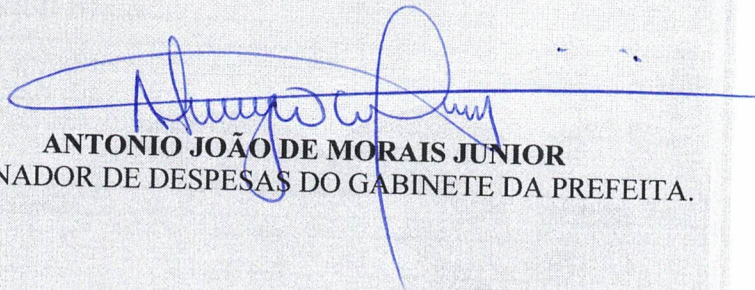 ANTONIO JOÃO DE MORAIS JUNIOR
NADOR DE DESPESAS DO GABINETE DA PREFEITA.